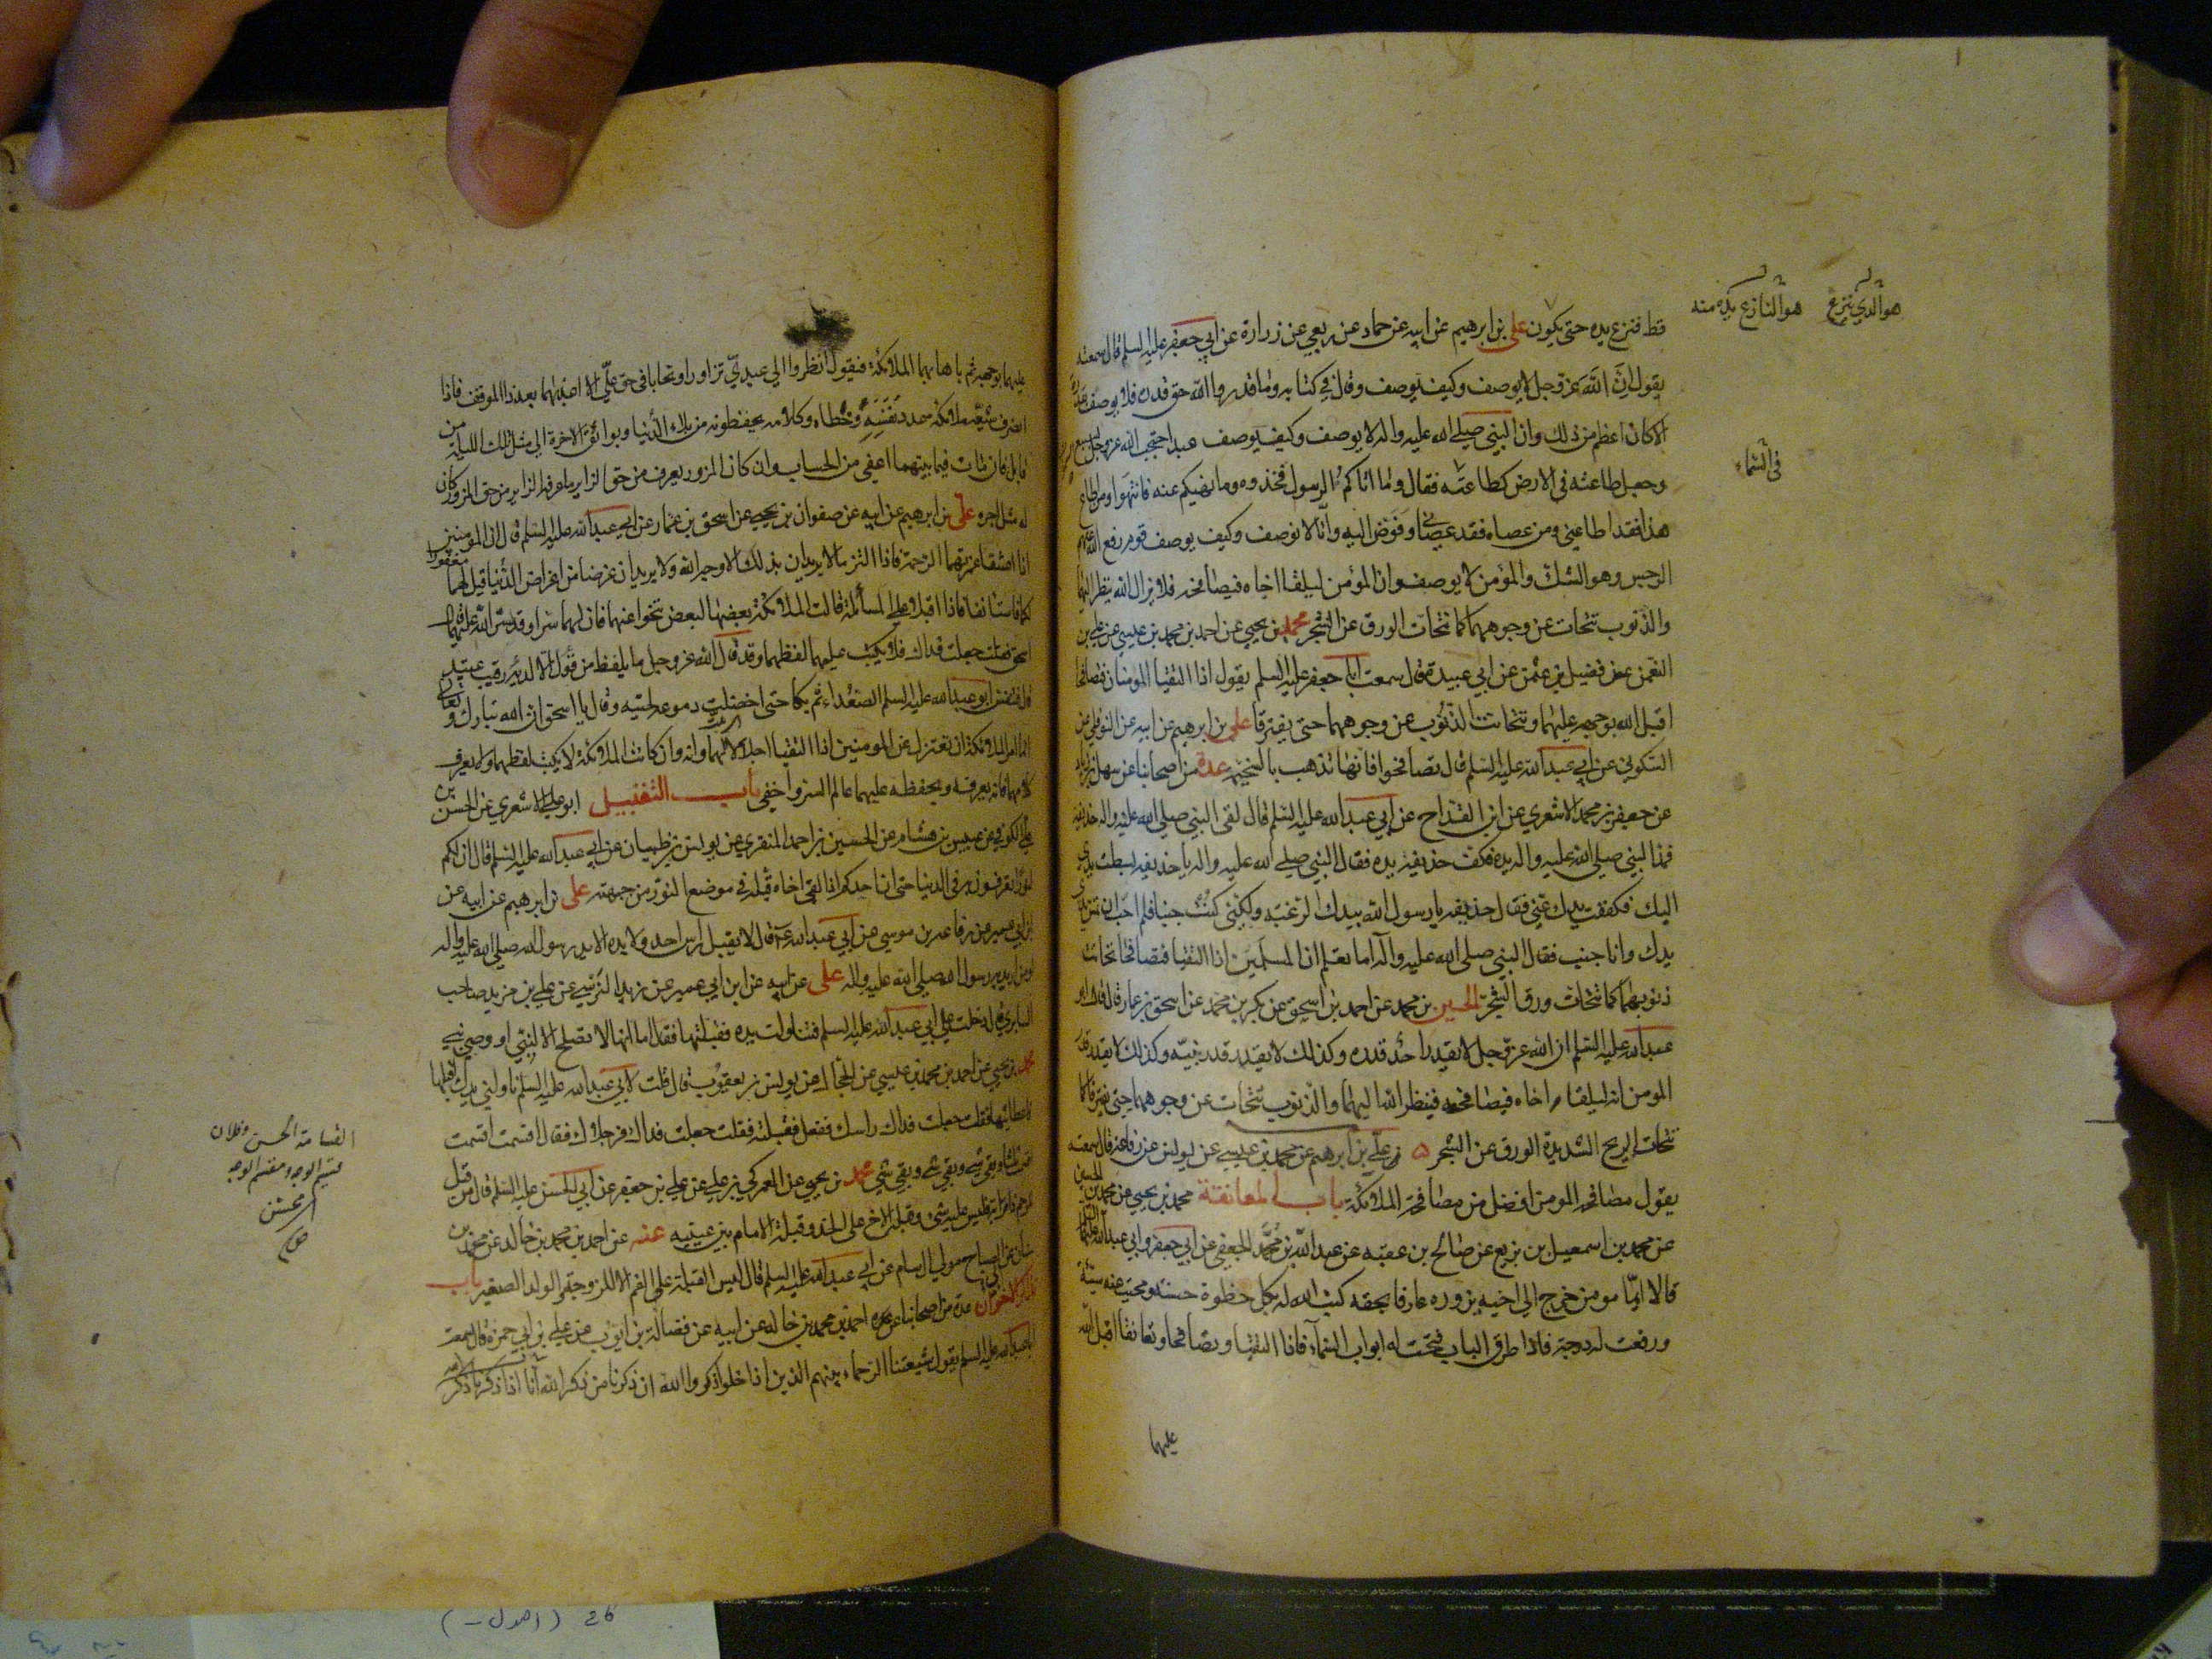 هو الذي ينزع
هو النازع يده منه
قط فنزع يده حتى يكون علي بن ابرهيم عن ابيه عن حماد عن ربعي عن زرارة عن ابي جعفر عليه السلم قال سمعته
يقول ان الله عز وجل لا يوصف وكيف يوصف وقال في كتابه وما قدروا الله حق قدره فلا يوصف بقدرة
الا كان اعظم من ذلك وان النبي صلى الله عليه واله لا يوصف وكيف يوصف عبد احتجب الله عز وجل بسبع
في السماء
وجعل طاعته في الارض كطاعته فقال وما اتاكم الرسول فخذوه وما نهيكم عنه فانتهوا ومن اطاع
هذا فقد اطاعني ومن عصاه فقد عصاني وفوض اليه وانا لا نوصف وكيف يوصف قوم رفع الله عنهم
الرجس وهو الشك والمؤمن لا يوصف وان المؤمن ليلقا اخاه فيصافحه فلا يزال الله ينظر اليهما
والذنوب تتحات عن وجوههما كما تتحات الورق عن الشجر محمد بن يحيى عن احمد بن محمد بن عيسى عن علي بن
النعمن عن فضيل بن عثمن عن ابي عبيدة قال سمعت ابا جعفر عليه السلم يقول اذا التقيا المؤمنان فتصافحا
اقبل الله بوجهه عليهما وتتحاتت الذنوب عن وجوههما حتى يفترقا علي بن ابرهيم عن ابيه عن النوفلي عن
السكوني عن ابي عبدالله عليه السلم قال تصافحوا فانها تذهب بالسخيمة عدة من اصحابنا عن سهل بن زياد
عن جعفر بن محمد الاشعري عن ابن القداح عن ابي عبدالله عليه السلم قال لقى النبي صلى الله عليه واله حذيفة
فمد النبي صلى الله عليه واله يده فكف حذيفة يده فقال النبي صلى الله عليه واله يا حذيفه بسطت يدي
اليك فكففت يدك عني فقال حذيفه يا رسول الله بيدك الرغبة ولكني كنت جنبا فلم احب ان تمس يدي
يدك وانا جنب فقال النبي صلى الله عليه واله اما تعلم ان المسلمين اذا التقيا فتصافحا تحاتت
ذنوبهما كما تتحات ورق الشجر الحسين بن محمد عن احمد بن اسحق عن بكر بن محمد عن اسحق بن عمار قال قال ابو
عبدالله عليه السلم ان الله عز وجل لا يقدر احد قدره وكذلك لا يقدر قدر نبيه وكذلك لا يقدر قدر
المومن انه ليلقا اخاه فيصافحه فينظر الله اليهما والذنوب تتحات عن وجوههما حتى يفترقا كما
تتحات الريح الشديدة الورق عن الشجر علي بن ابرهيم عن محمد بن عيسى عن يونس عن رفاعة قال سمعته
يقول مصافحة المومن افضل من مصافحة الملائكة باب المعانقة محمد بن يحيى عن محمد بن الحسين
عن محمد بن اسمعيل بن بزيع عن صالح بن عقبة عن عبد الله بن محمد الجعفي عن ابي جعفر وابي عبدالله عليهما السلم
قالا ايما مومن خرج الى اخيه يزوره عارفا بحقه كتب الله له بكل خطوة حسنة ومحيت عنه سيئة
ورفعت له درجة فاذا طرق الباب فتحت له ابواب السماء فاذا التقيا وتصافحا وتعانقا اقبل الله
عليهما
عليهما بوجهه ثم باها بهما الملائكة فيقول انظروا الى عبدي تزاورا وتحابا في حق علي الا اعذبهما بعد ذا الموقف فاذا
انصرف شيعه ملائكة عدد نفسه وخطاه وكلامه يحفظونه من بلاء الدنيا وبوائق الاخرة الى مثل تلك الليلة من
قابل فان مات فيما بينهما اعفي من الحساب وان كان المزور يعرف من حق الزاير ما عرفه الزاير من حق المزور كان
له مثل اجره علي بن ابرهيم عن ابيه عن صفوان بن يحيى عن اسحق بن عمار عن ابي عبدالله عليه السلم قال ان المومنين
اذا اعتنقا غمرتهما الرحمة فاذا التزما لا يريدان بذلك الا وجه الله ولا يريدان غرضا من اغراض الدنيا قيل لهما مغفورا
لكما فاستانفا فاذا اقبلا على المسائلة قالت الملائكة بعضها لبعض تنحوا عنهما فان لهما سرا وقد ستر الله عليهما قال
اسحق فقلت جعلت فداك فلا يكتب عليهما لفظهما وقد قال الله عز وجل ما يلفظ من قول الا لديه رقيب عتيد
قال فتنفس ابو عبدالله عليه السلم الصعداء ثم بكا حتى اخضلت دموعه لحيته وقال يا اسحق ان الله تبارك وتعالى
انما امر الملائكة ان تعتزل عن المومنين اذا التقيا اجلالا لهما وانه وان كانت الملائكة لا يكتب لفظهما ولا يعرف
كلامهما فانه يعرفه ويحفظه عليهما عالم السر واخفى باب التقبيل ابو علي الاشعري عن الحسن بن
علي الكوفي عن عبيس بن هشام عن الحسين بن احمد المنقري عن يونس بن ظبيان عن ابي عبدالله عليه السلم قال ان لكم
لنورا تعرفون به في الدنيا حتى ان احدكم اذا لقى اخاه قبله في موضع النور من جبهته علي بن ابرهيم عن ابيه عن
ابن ابي عمير عن رفاعة بن موسى عن ابي عبدالله ع قال لا يقبل راس احد ولا يده الا يد رسول الله صلى الله عليه واله
او من اريد به رسول الله صلى الله عليه واله علي عن ابيه عن ابن ابي عمير عن زيد النرسي عن علي بن مزيد صاحب
السابري قال دخلت على ابي عبدالله عليه السلم فتناولت يده فقبلتها فقال اما انها لا تصلح الا لنبي او وصي نبي
محمد بن يحيى عن احمد بن محمد بن عيسى عن الحجال عن يونس بن يعقوب قال قلت لابي عبدالله عليه السلم ناولني يدك اقبلها
فاعطانيها فقلت جعلت فداك راسك ففعل فقبلته فقلت جعلت فداك فرجلاك فقال اقسمت اقسمت
اقسمت ثلثا وبقي شي وبقي شي وبقي شي محمد بن يحيى عن العمركي بن علي عن علي بن جعفر عن ابي الحسن عليه السلم قال من قبل
للرحم ذا قرابة فليس عليه شي وقبلة الاخ على الخد وقبلة الامام بين عينيه عنه عن احمد بن محمد بن خالد عن محمد بن
سنان عن الصباح مولى ال سام عن ابي عبدالله عليه السلم قال ليس القبلة على الفم الا للزوجة والولد الصغير باب
تذاكر الاخوان عدة من اصحابنا عن احمد بن محمد بن خالد عن ابيه عن فضالة بن ايوب عن علي بن ابي حمزة قال سمعت
ابا عبدالله عليه السلم يقول شيعتنا الرحماء بينهم الذين اذا خلوا ذكروا الله ان ذكرنا من ذكر الله انا اذا ذكرنا ذكر الله
القسامة الحسن وفلان
قسيم الوجه ومقسم الوجه
26 (اصول -)